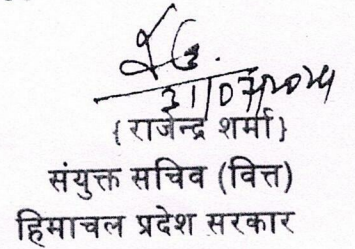 31/07/2024
{राजेन्द्र शर्मा}
संयुक्त सचिव (वित्त)
हिमाचल प्रदेश सरकार